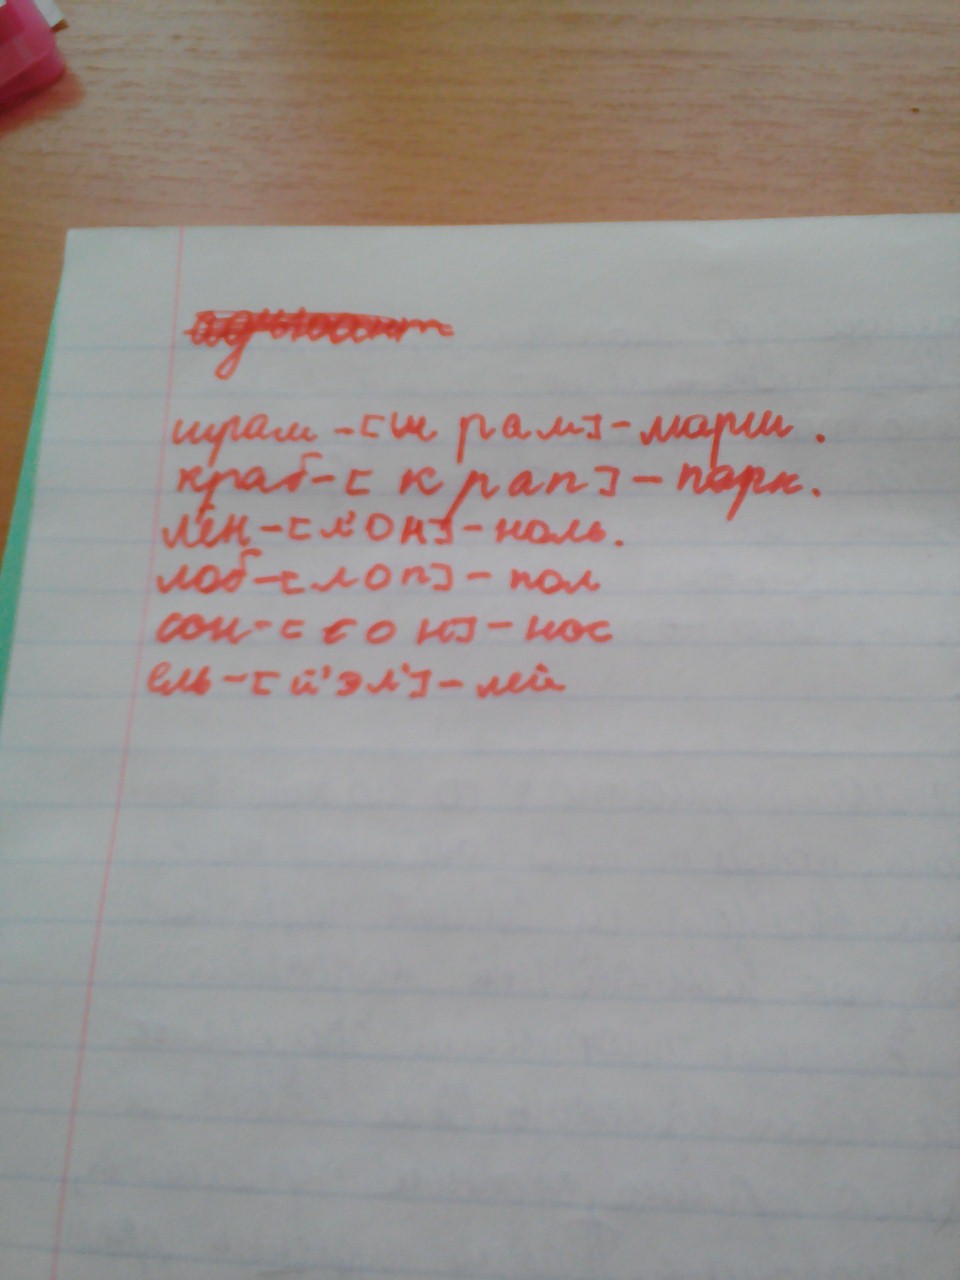 адъютант
шрам - [ш р а м] - марш.
краб - [ к р а п ] - парк.
лён - [ л' о н ] - ноль.
лоб - [ л о п ] - пол
сон - [ с о н ] - нос
ель - [ й' э л' ] - лей